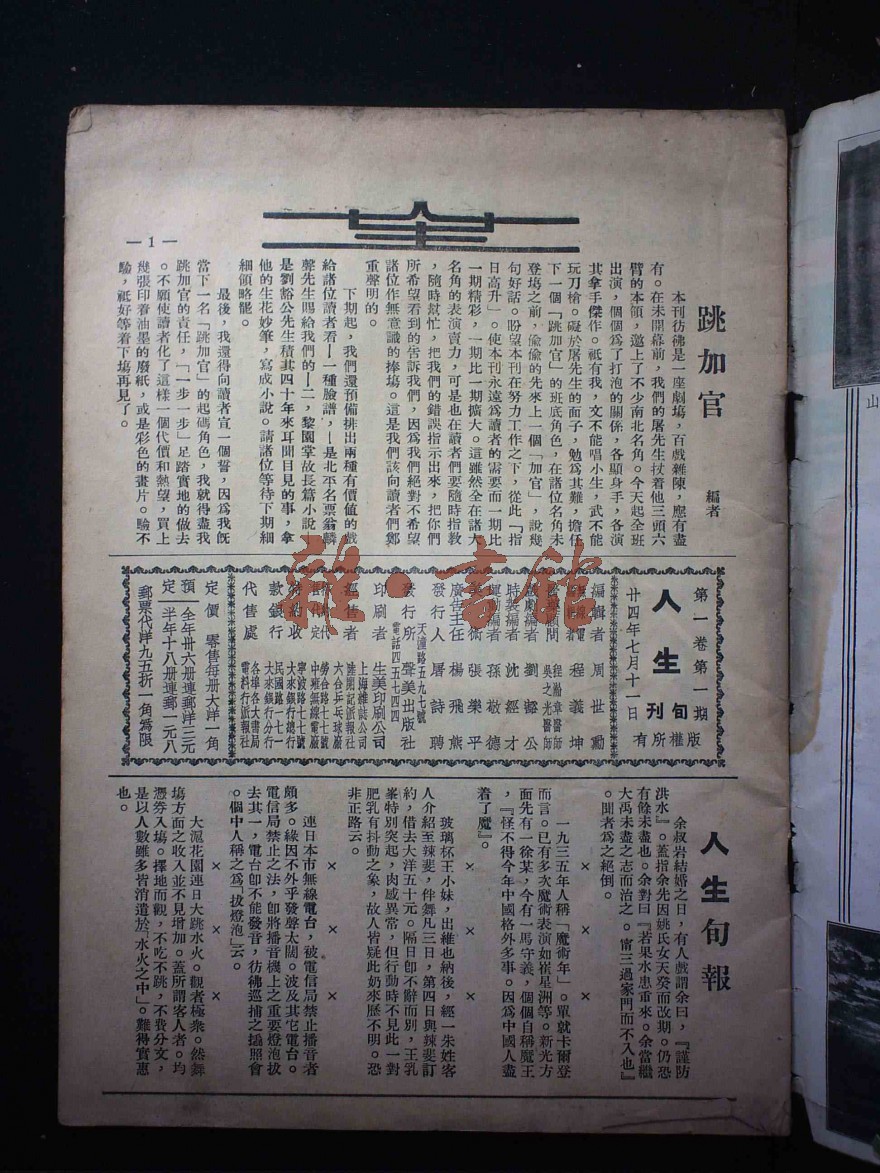 人生
— 1 —
跳加官
編者
本刊彷彿是一座劇塲，百戲雜陳，應有盡
有。在未開幕前，我們的屠先生扶着他三頭六
臂的本領，邀上了不少南北名角。今天起全班
出演，個個爲了打泡的關係，各顯身手，各演
其拿手傑作。祇有我，文不能唱小生，武不能
玩刀槍。礙於屠先生的面子，勉爲其難，擔任
下一個「跳加官」的班底角色，在諸位名角未
登塲之前，偷偷的先來上一個「加官」，說幾
句好話。盼望本刊在努力工作之下，從此「指
日高升」。使本刊永遠爲讀者的需要而一期比
一期精彩，一期比一期擴大。這雖然全在諸大
名角的表演賣力，可是也在讀者們要隨時指敎
，隨時幫忙，把我們的錯誤指示出來，把你們
所希望看到的告訴我們，因爲我們絕對不希望
諸位作無意識的捧塲。這是我們該向讀者們鄭
重聲明的。
下期起，我們還預備排出兩種有價值的戲
給諸位讀者看—一種臉譜，—是北平名票翁麟
聲先生賜給我們的—二，黎園掌故長篇小說，
是劉豁公先生積其四十年來耳聞目見的事，拿
他的生花妙筆，寫成小說。請諸位等待下期細
細領略罷。
最後，我還得向讀者宣一個誓，因爲我旣
當下一名「跳加官」的起碼角色，我就得盡我
跳加官的責任，「一步一步」足踏實地的做去
。不願使讀者化了這樣一個代價和熱望，買上
幾張印着油墨的廢紙，或是彩色的畫片。驗不
驗，祇好等着下塲再見了。
第一卷第一期
人生旬刊
廿四年七月十一日
版權所有
編輯者 周世勳
程義坤
醫藥顧問 程瀚章醫師 吳之光醫師
戲劇編者 劉豁公
時裝編者 沈經才
運動編者 孫敬德
美術 張樂平
廣告主任 楊飛熊
發行人 屠詩聘
發行所 聲美出版社
天潼路五九七號
電話四五七四四
印刷者 生美印刷公司
經售者 上海雜誌公司
陸開記派報社
代定 六合乒乓球廠
勞合路七十七號
中雍無線電廠
寧波路七十七號
特約收款銀行 大來銀行總行
民國路一七一
大來銀行分行
代售處 各埠各大書局
電料行派報社
定價 零售每册大洋一角
預定 全年卅六册連郵洋三元
半年十八册連郵一元八
郵票代洋九五折一角爲限
人生旬報
余叔岩結婚之日，有人戲謂余曰，『謹防
洪水』。蓋指余先因姚氏女天癸而改期。仍恐
有餘未盡也。余對曰『若果水患重來。余當繼
大禹未盡之志而治之。甯三過家門而不入也』
。聞者爲之絕倒。
×　×　×
一九三五年人稱「魔術年」。單就卡爾登
而言。已有多次魔術表演如崔星洲等。新光方
面先有一徐某，今有一馬守義，個個自稱魔王
，『怪不得今年中國格外多事。因爲中國人盡
着了魔』。
玻璃杯王小妹，出維也納後，經一朱姓客
人介紹至辣斐，伴舞凡三日，第四日與辣斐訂
約，借去大洋五十元。隔日卽不辭而別，王乳
峯特別突起，肉感異常，但行動時不見此一對
肥乳有抖動之象，故人皆疑此奶來歷不明。恐
非正路云。
×　×　×
連日本市無線電台，被電信局禁止播音者
頗多。緣因不外乎發聲太濶。波及其它電台。
電信局禁止之法，卽將播音機上之重要燈泡拔
去其一，電台卽不能發音，彷彿巡捕之撬照會
。個中人稱之爲「拔燈泡」云。
×　×　×
大滬花園連日大跳水火。觀者極衆。然舞
塲方面之收入並不見增加。蓋所謂客人者。均
憑劵入塲。擇地而觀，不吃不跳，不費分文，
是以人數雖多皆消遣於「水火之中」。難得實惠
也。
雜·書館
山